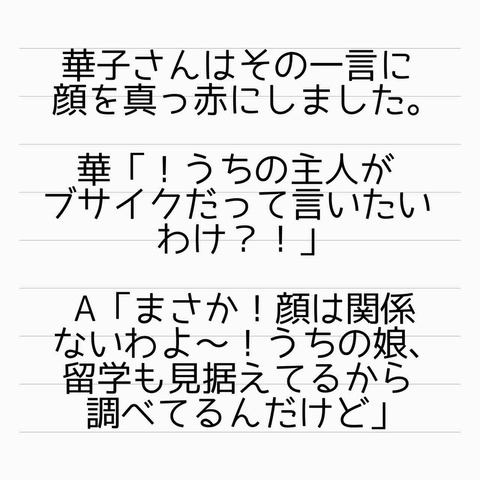 華子さんはその一言に
顔を真っ赤にしました。
華「！うちの主人が
ブサイクだって言いたい
わけ？！」
A「まさか！顔は関係
ないわよ〜！うちの娘、
留学も見据えてるから
調べてるんだけど」